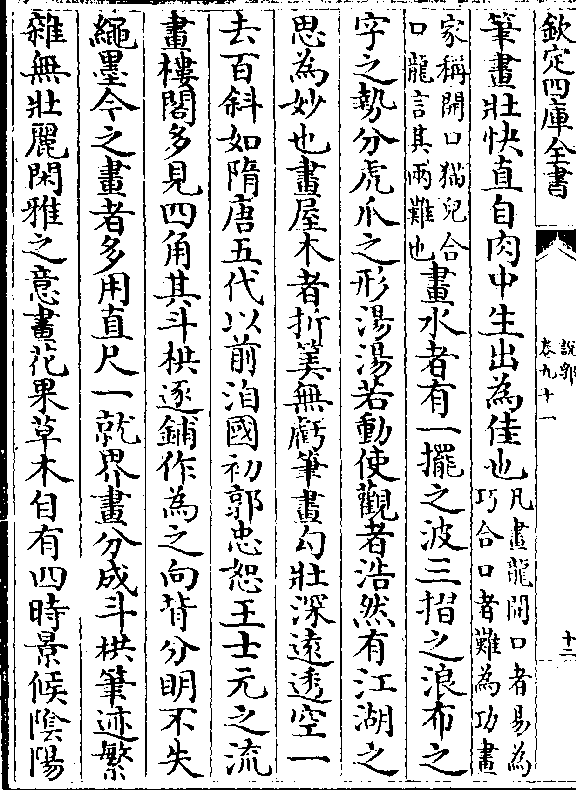 欽定四庫全書
說郛
卷九十一
十二
筆畫壯快直自肉中生出為佳也凡畫龍開口者易為
巧合口者難為功畫
家稱開口猫兒合
口龍言其兩難也畫水者有一擺之波三摺之浪布之
字之勢分虎爪之形湯湯若動使觀者浩然有江湖之
思為妙也畫屋木者折筭無虧筆畫勻壯深遠透空一
去百斜如隋唐五代以前洎國初郭忠恕王士元之流
畫樓閣多見四角其斗栱逐鋪作為之向背分明不失
繩墨今之畫者多用直尺一就界畫分成斗栱筆迹繁
雜無壯麗閑雅之意畫花果草木自有四時景候陰陽